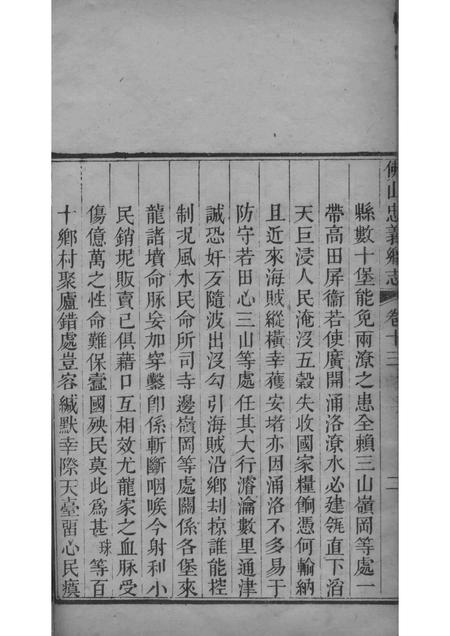 佛山忠義鄉志 卷十三 二
縣數十堡能免雨潦之患全賴三山嶺岡等處一
帶高田屏衞若使廣開涌洛潦水必建瓴直下滔
天巨浸人民淹沒五穀失收國家糧餉憑何輸納
且近來海賊縱橫幸獲安堵亦因涌洛不多易于
防守若田心三山等處任其大行濬瀹數里通津
誠恐奸歹隨波出沒勾引海賊沿鄉刦掠誰能控
制況風水民命所司寺邊嶺岡等處關係各堡來
龍諸墳命脈妄加穿鑿卽係斬斷咽喉今射利小
民銷坭販賣已俱藉口互相效尤龍家之血脈受
傷億萬之性命難保蠹國殃民莫此爲甚珠等百
十鄉村聚廬錯處豈容緘默幸際天臺畱心民瘼